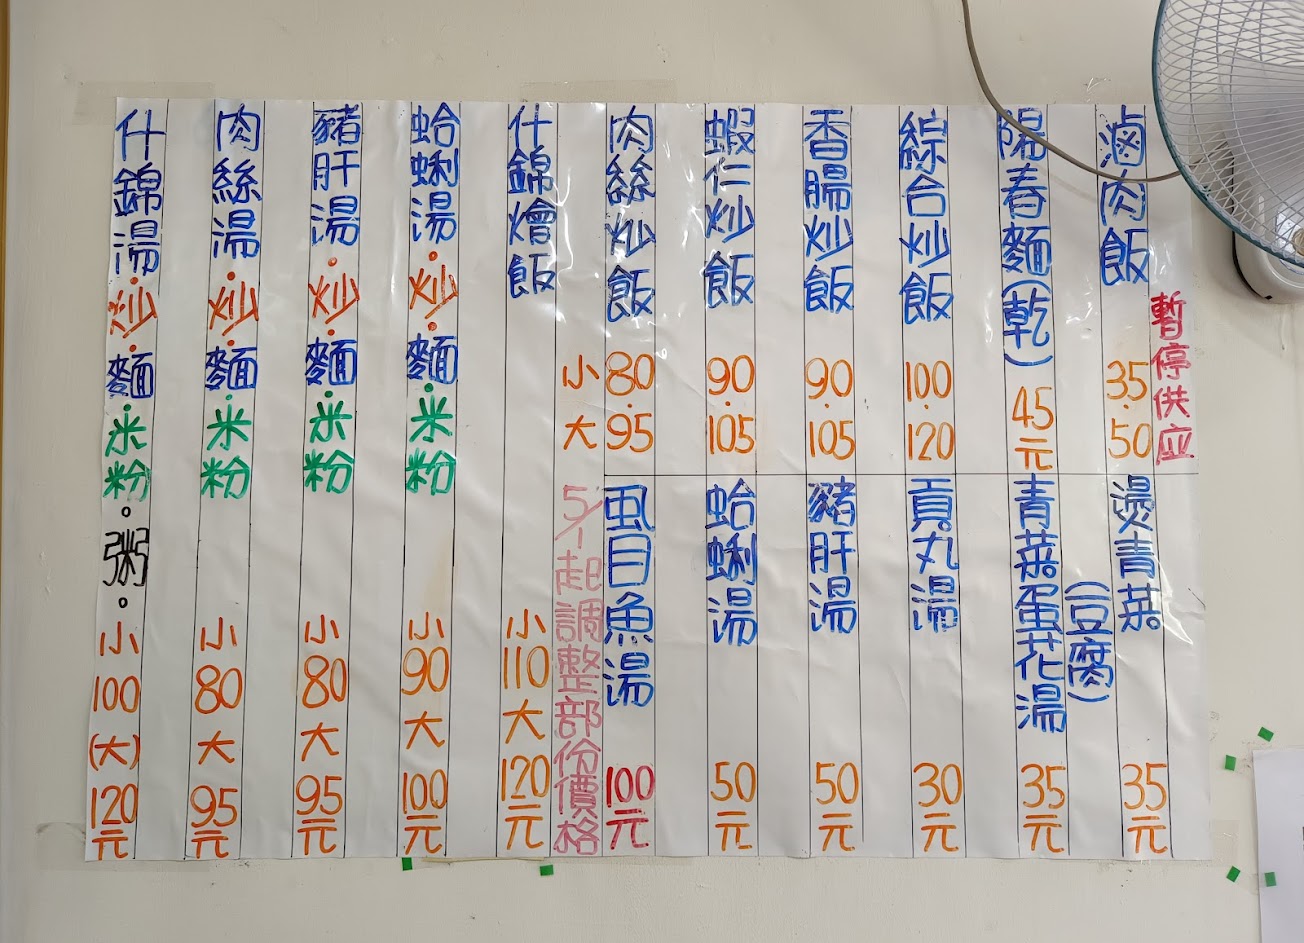 滷肉飯 35.50
暫停供应
陽春麵(乾) 45元
綜合炒飯 100.120
香腸炒飯 90.105
蝦仁炒飯 90.105
肉絲炒飯 80.95
小 大
燙青菜 35元
(豆腐)
青菜蛋花湯 35元
貢丸湯 30元
豬肝湯 50元
蛤蜊湯 50元
虱目魚湯 100元
5/1起調整部份價格
什錦燴飯 小110大120元
蛤蜊湯.炒.麵.米粉 小90大100元
豬肝湯.炒.麵.米粉 小80大95元
肉絲湯.炒.麵.米粉 小80大95元
什錦湯.炒.麵.米粉。粥。小100(大)120元